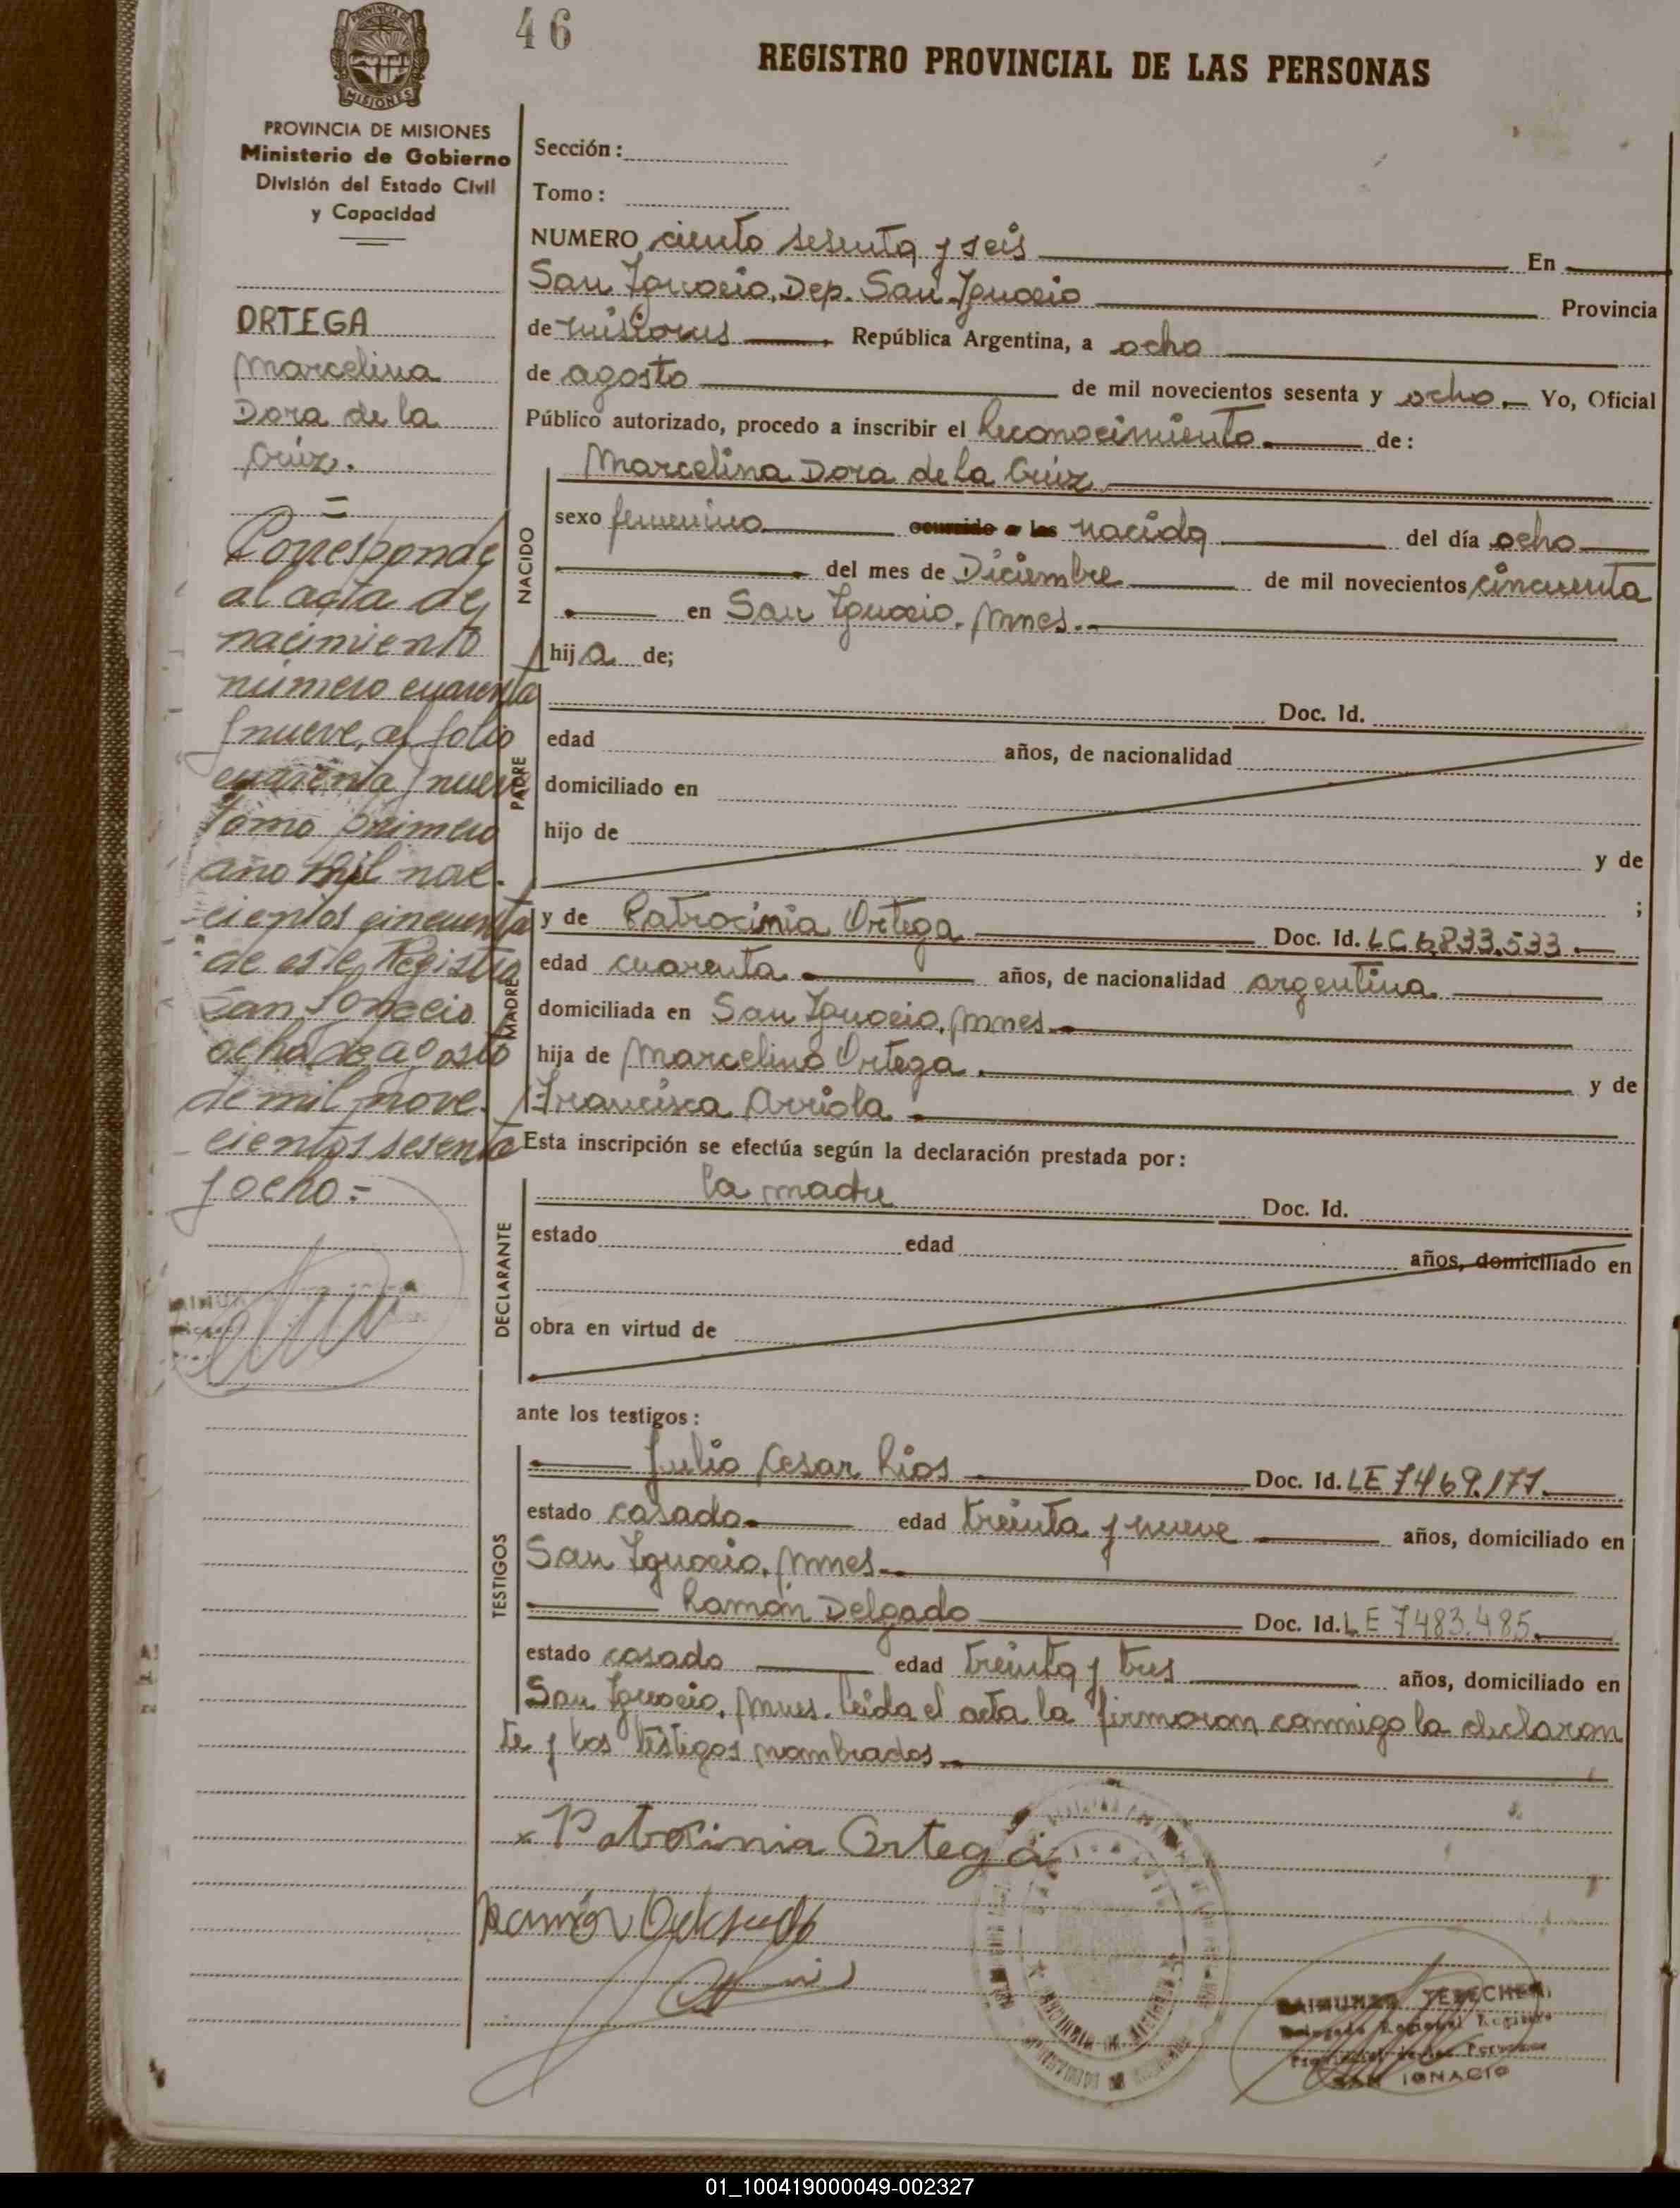 46
REGISTRO PROVINCIAL DE LAS PERSONAS
PROVINCIA DE
MISIONES
PROVINCIA DE MISIONES
Ministerio de Gobierno
División del Estado Civil
y Capacidad
ORTEGA
Marcelina
Dora de la
Crúz.
=
Corresponde
al acta de
nacimiento
número cuarenta
y nueve, al folio
cuarenta y nueve
tomo primero
año mil nove-
cientos cincuenta
de este Registro
San Ignacio
ocho de agosto
de mil nove-
cientos sesenta
y ocho.-
Sección:
Tomo:
NUMERO ciento sesenta y seis En
San Ignacio, Dep. San Ignacio Provincia
de Misiones República Argentina, a ocho
de agosto de mil novecientos sesenta y ocho. Yo, Oficial
Público autorizado, procedo a inscribir el Reconocimiento de:
Marcelina Dora de la Crúz
NACIDO
sexo femenino ocurrido a las nacida del día ocho
del mes de Diciembre de mil novecientos cincuenta
en San Ignacio. Mnes.
hija de;
PADRE
Doc. Id.
edad años, de nacionalidad
domiciliado en
hijo de y de
;
MADRE
y de Patrocinia Ortega Doc. Id. LC 6.833.533.
edad cuarenta años, de nacionalidad argentina
domiciliada en San Ignacio, Mnes.
hija de Marcelino Ortega y de
Francisca Arriola
Esta inscripción se efectúa según la declaración prestada por:
DECLARANTE
la madre Doc. Id.
estado edad años, domiciliado en
obra en virtud de
ante los testigos:
TESTIGOS
Julio Cesar Rios Doc. Id. LE 7469.177.
estado casado edad treinta y nueve años, domiciliado en
San Ignacio, Mnes.
Ramón Delgado Doc. Id. LE 7483.485.
estado casado edad treinta y tres años, domiciliado en
San Ignacio, Mnes. Leida el acta la firmaran conmigo la declaran
te y los testigos nombrados.
x Patrocinia Ortega
Ramón Delgado
RAIMUNDO
Delegado Regional Registro
Provincial de las Personas
SAN IGNACIO
01_100419000049-002327